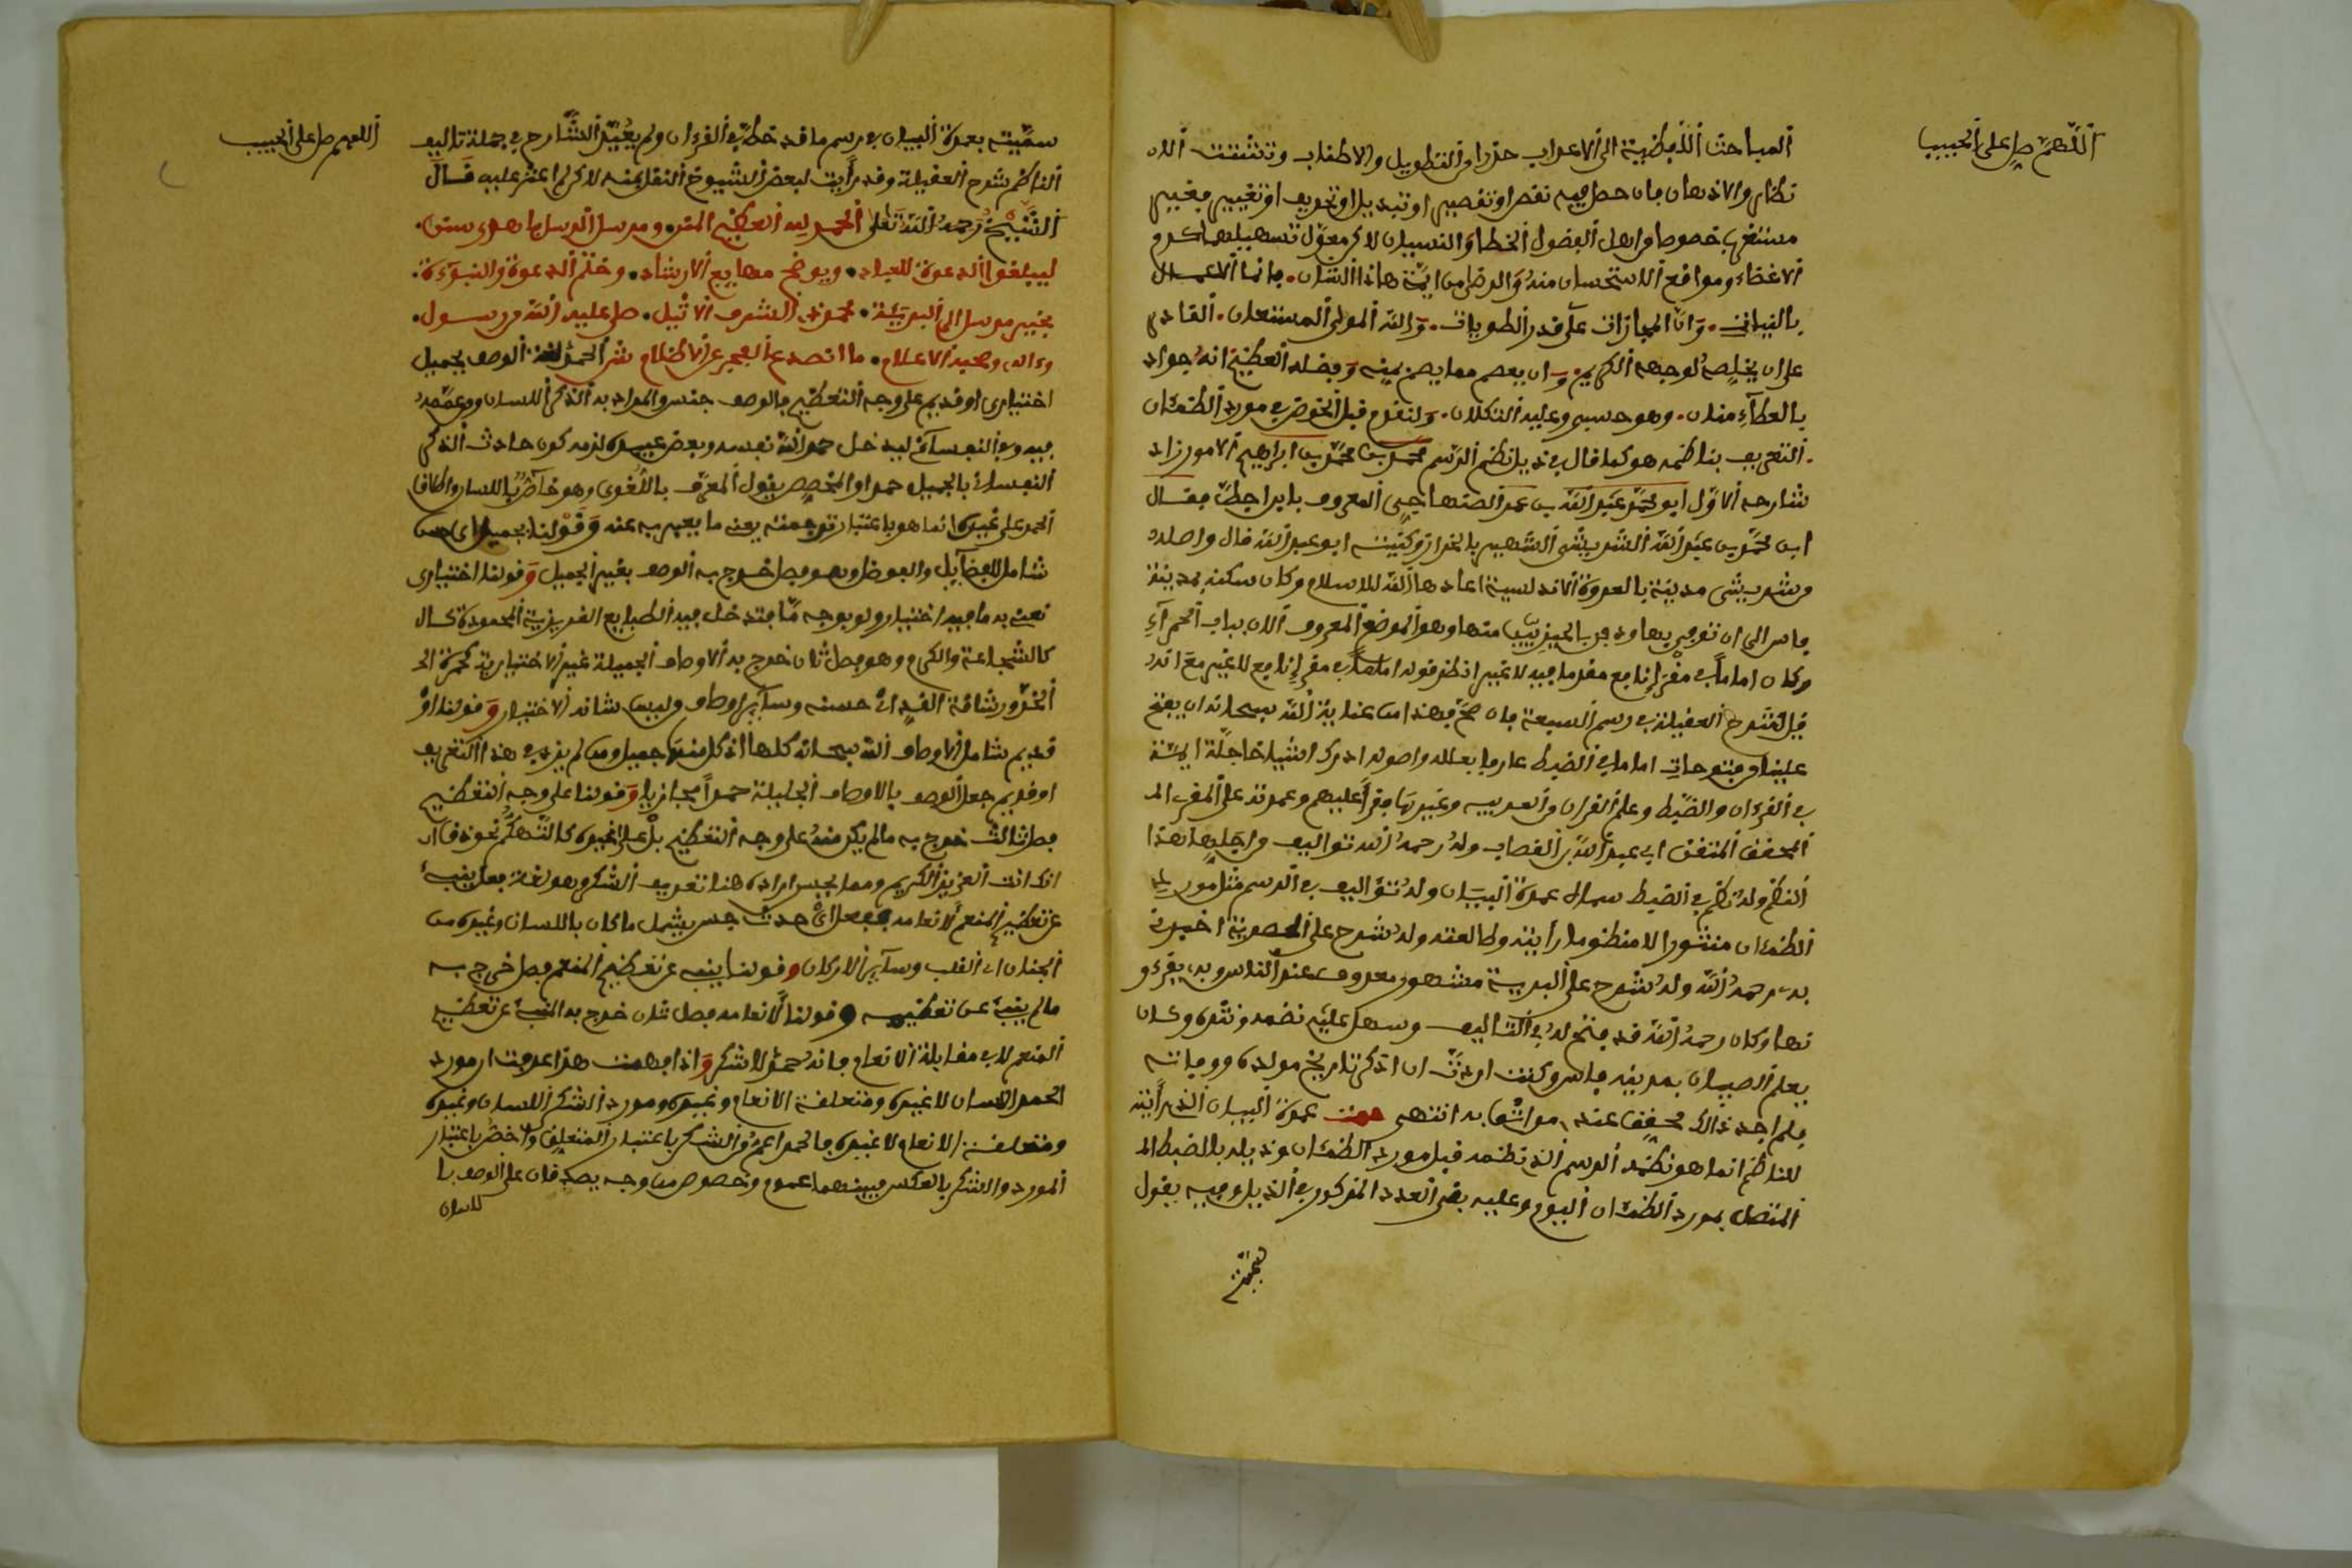 اللهم صل على الحبيب
المباحث اللفظية الى الاعراب حذرا من التطويل والاطناب وتشتت الان
نظار والاذهان فان حصل فيه نقص او تقصير او تبديل او تحريف او تغيير فغير
مستغرب خصوصا من اهل الفضول الخطا والنسيان لاكن معول تسهيلها كرم
الاغضاء ومواقع الاستحسان منه والرضى من ايمة هاذا الشان. فانما الاعمال
بالنيات. وان المجازات على قدر الطويات. والله المولى المستعان. القادر
على ان يخلصه لوجهه الكريم. وان يعصم مما يصم بمنه وبفضله العظيم انه جواد
بالعطاء منان. وهو حسبي وعليه التكلان. ولنقدم قبل الخوض في مورد الظمئان
التعريف بناظمه هو كما قال في ذيل نظم الرسم محمد بن محمد بن ابراهيم الاموي زاد
شارحه الاول ابو محمد عبد الله بن عمر الصنهاجي المعروف بابن اجطا فقال
ابن محمد بن عبد الله الشريشي الشهير بالخراز وكنيته ابو عبد الله قال واصله
من شريش مدينة بالعدوة الاندلسية اعادها الله للاسلام وكان سكنه بمدينة
فاس الى ان توفي بها ودفن بالجيزيين منها وهو الموضع المعروف الان بباب الحمراء
وكان اماما في مقرإ نافع مقدما فيه لا غير انظر قوله اماما في مقرإ نافع لا غير مع انه
قبل شرح العقيلة في رسم السبعة فان صح فهذا من عناية الله سبحانه ان يفتح
علينا من فتوحات اماما في الضبط عارفا بعلله واصوله ادرك اشياخا جلة ايمة
في القرءان والضبط وعلم القران والعربيه وغيرها فقرأ عليهم وعمدته على المقرئ الم
المحقق المتقن ابي عبد الله بن القصاب وله رحمه الله تواليف من اجلها هذا
النظم وله نظم في الضبط سماه عمدة البيان وله تواليف في الرسم مثل مورد
الظمئان منثورا لا منظوما رايته وطالعته وله شرح على الحصرية اخبرني
به رحمه الله وله شرح على البرية مشهور معروف عند الناس وبه يقرءو
نها وكان رحمه الله قد فتح له في التاليف وسهل عليه نظمه ونثره وكان
يعلم الصبيان بمدينة فاس وكنت اردت ان اذكر تاريخ مولده ووفاته
فلم اجد ذالك محققا عند من اثق به انتهى عمدة البيان الذي رأيته
للناظم انما هو نظمه الرسم الذي نظمه قبل مورد الظمئان وذيله بالضبط الم
المتصل بمورد الظمئان اليوم وعليه بقي العدد المذكور في الذيل وفيه يقول
اللهم صل على الحبيب
سميته بعمدة البيان في رسم ما قد خط في القرءان ولم يعيد الشارح في جملة تاليف
الناظم شرح العقيلة وقد رأيت لبعض الشيوخ النقل منه لاكن لم اعثر عليه قال
الشيخ رحمه الله تعلى الحمد لله العظيم المنن ومرسل الرسل باهدى سنن.
ليبلغوا الدعوة للعباد. ويوضح مهايع الارشاد. وختم الدعوة والنبوءة.
بخير مرسل الى البريئة. محمد ذي الشرف الاثيل. صلى عليه الله من رسول.
وءاله وصحبه الاعلام. ما انصدع الفجر عن الاظلام ش الحمد لغة الوصف بجميل
اختياري او قديم على وجه التعظيم فالوصف جنس والمراد به الذكر اللسان وعممه
فيه وفي النفساني ليدخل حمد الله نفسه وبعض عبيده لزمه كون حادث الذكر
النفساني بالجميل حمدا والمخصص يقول المعرف باللغوي وهو خاص باللسان واطلاق
الحمد على غيره انما هو باعتبار ترجمته يعنى ما يعبر به عنه وقولنا بجميل اي حسن
شامل للفضايل والفواضل وهو فصل خرج به الوصف بغير الجميل وقولنا اختياري
نعت به ما فيه اختيار ولو بوجه ما فتدخل فيه الطبايع الغريزية المحمودة كال
كالشجاعة والكرم وهو فصل ثان خرج به الاوصاف الجميلة غير الاختيارية كحمرة الخ
الخد ورشاقة القد اي حسنه وساير اوصاف وليس شانه الاختيار وقولنا او
قديم شامل لاوصاف الله سبحانه كلها اذ كل منها جميل ومن لم يزد في هذا التعريف
او قديم جعل الوصف بالاوصاف الجليلة حمدا مجازيا وقولنا على وجه التعظيم
فصل ثالث خرج به ما لم يكن منه على وجه التعظيم بل على غيره كالتهكم نحو ذق ان
انك انت العزيز الكريم ومما يحسن ايراده هنا تعريف الشكر وهو لغة فعل ينبئ
عن تعظيم المنعم لانعامه ففعل اي حدث جنس يشمل ما كان باللسان وغيره من
الجنان اي القلب وساير الاركان وقولنا ينبئ عن تعظيم المنعم فصل خرج به
ما لم ينبئ عن تعظيمه وقولنا لانعامه فصل ثان خرج به المنبئ عن تعظيم
المنعم لا في مقابلة الانعام فانه حمد لا شكر واذا فهمت هذا عرفت ان مورد
الحمد اللسان لا غيره ومتعلقه الانعام وغيره ومورد الشكر اللسان وغيره
ومتعلقه الانعام لا غيره فالحمد اعم من الشكر باعتبار المتعلق واخص باعتبار
المورد والشكر بالعكس فبينهما عموم وخصوص من وجه يصدقان على الوصف با
للسان